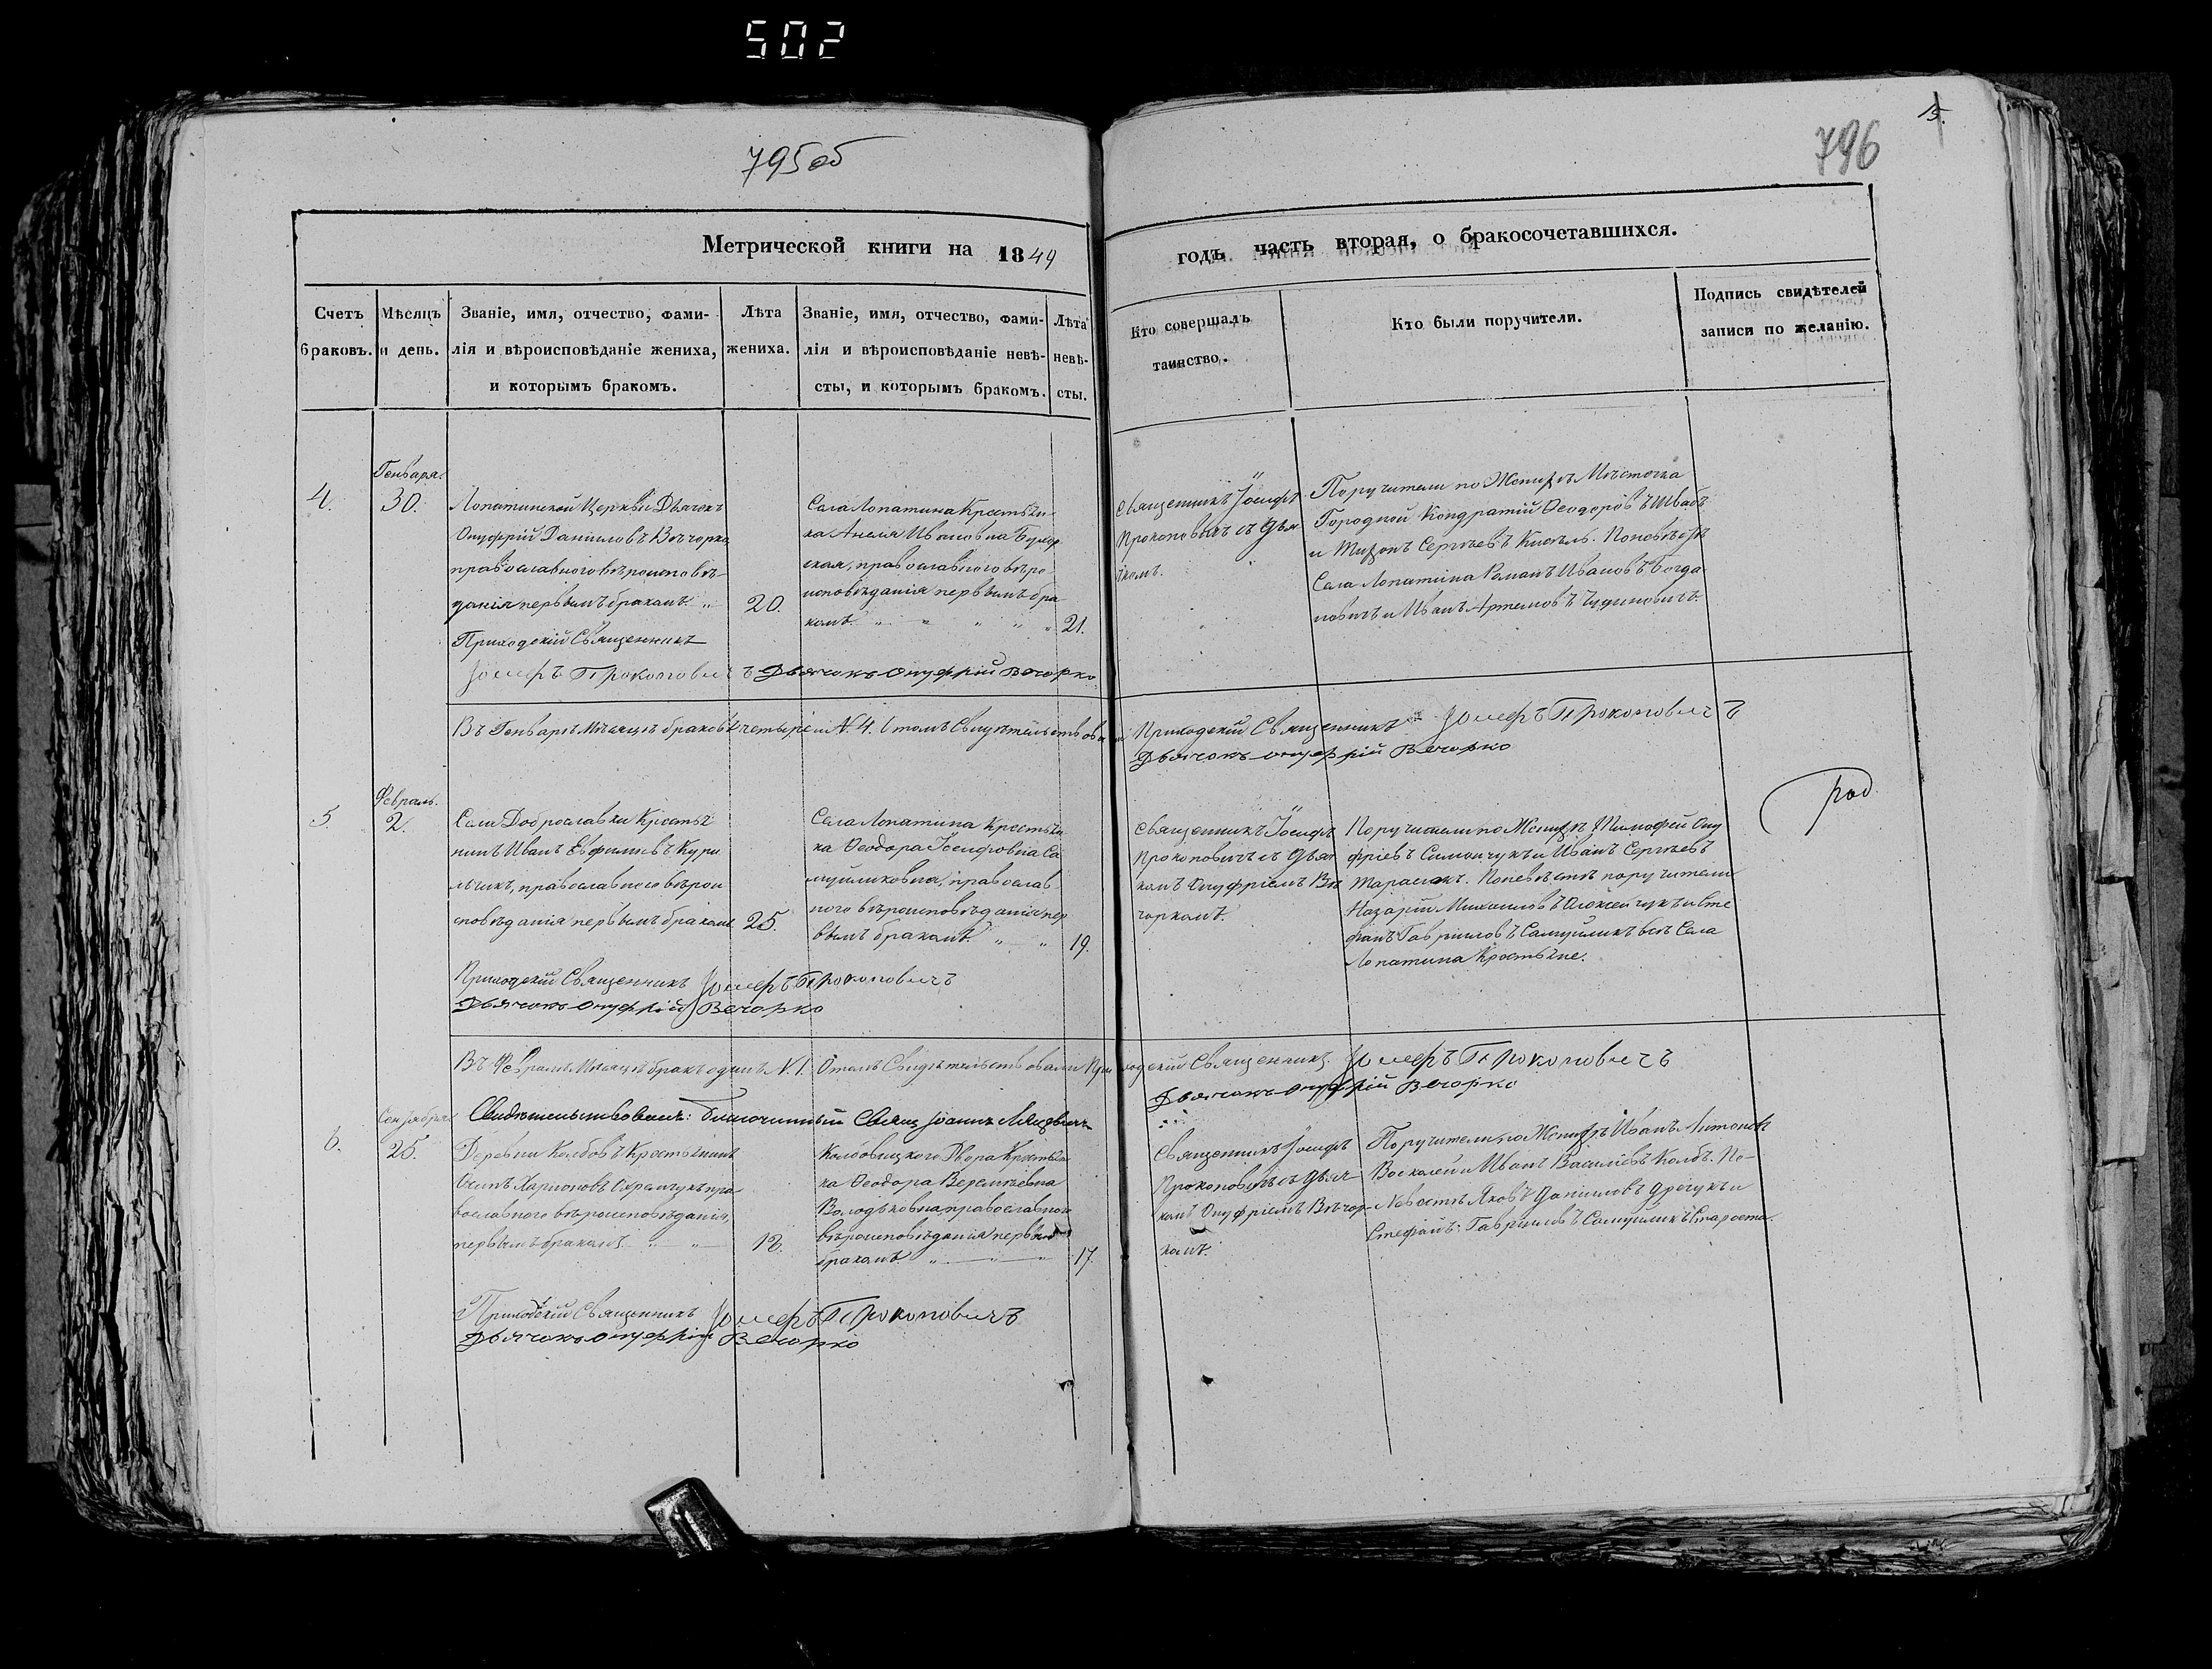 502
795 об
796
15.
Метрической книги на 1849
годъ часть вторая, о бракосочетавшихся.
Счетъ браковъ.
Мѣсяцъ и день.
Званіе, имя, отчество, фами-
лія и вѣроисповѣданіе жениха,
и которымъ бракомъ.
Лѣта
жениха.
Званіе, имя, отчество, фами-
лія и вѣроисповѣданіе невѣ-
сты, и которымъ бракомъ.
Лѣта
невѣ-
сты.
Кто совершалъ
таинство.
Кто были поручители.
Подпись свидѣтелей
записи по желанію.
4.
Генваря.
30.
Лопатинской Церкви Дьячокъ
Онуфрій Даніиловъ Вѣчорко
православного вѣроисповѣ-
данія первымъ бракомъ. "
Приходскій Священникъ
20.
Села Лопатина Крестьян-
ка Анелія Иванова
ская, православного вѣро
исповѣданія первымъ бра
комъ. " " " " "
21.
Священникъ Іосифъ
Прокоповичъ съ Дья
чкомъ.
Поручители по Женихѣ Мѣстечка
Городной Кондратій Ѳеодоровъ Швабъ
и Тихонъ Сергѣевъ Кисель. По невѣстѣ
Села Лопатина Романъ Ивановъ Богда
новичъ и Иванъ Артемовъ
Іосифъ Прокоповичъ Дьячокъ Онуфрій Вечорко
Въ Генварѣ Мѣсяцѣ браковъ четыре N. 4. О томъ Свидѣтельствовали Приходскій Священникъ Іосифъ Прокоповичъ
Дьячокъ Онуфрій Вечорко
5.
Февраль.
2.
Села Доброславки Крестья
нинъ Иванъ Евфимовъ Кури
льчикъ, православного вѣрои
сповѣданія первымъ бракомъ
25.
Села Лопатина Крестьян
ка Ѳеодора Іосифовна Са
муиликовна, православ
ного вѣроисповѣданія пер
вымъ бракомъ. " "
19.
Священникъ Іосифъ
Прокоповичъ съ Дьяч
комъ Онуфріемъ Вѣ
чоркомъ.
Поручители по Женихѣ Тимофей Ону
фріевъ Симончукъ и Иванъ Сергѣевъ
Тарасюкъ. По невѣстѣ поручители
Назарій Михаиловъ Олексейчукъ и Сте
фанъ Гавриловъ Самуиликъ всѣ Села
Лопатина Крестьяне.
род
Приходскій Священникъ Іосифъ Прокоповичъ
Дьячокъ Онуфрій Вечорко
Въ Февралѣ Мѣсяцѣ бракъ одинъ N. 1. О томъ Свидѣтельствовали Приходскій Священникъ Іосифъ Прокоповичъ
Дьячокъ Онуфрій Вечорко
Свидѣтельствовалъ: Благочинный Свящ Іоаннъ
6.
Сентября
25.
Деревни Колбовъ Крестьянинъ
Харионовъ Охремчукъ пра
вославного вѣроисповѣданія,
первымъ бракомъ. " "
18.
Колбовицкого Двора Крестьян
ка Ѳеодора Веремѣевна
Володьковна православного
вѣроисповѣданія первымъ
бракомъ. " " "
17.
Священникъ Іосифъ
Прокоповичъ съ Дьяч-
комъ Онуфріемъ Вѣчор-
комъ.
Поручители по Женихѣ Иванъ Антонов
и Иванъ Василіевъ Колбъ. По-
Невѣстѣ Яковъ Даниловъ и
Стефанъ Гавриловъ Самуиликъ Староста.
Приходскій Священникъ Іосифъ Прокоповичъ
Дьячокъ Онуфрій Вечорко